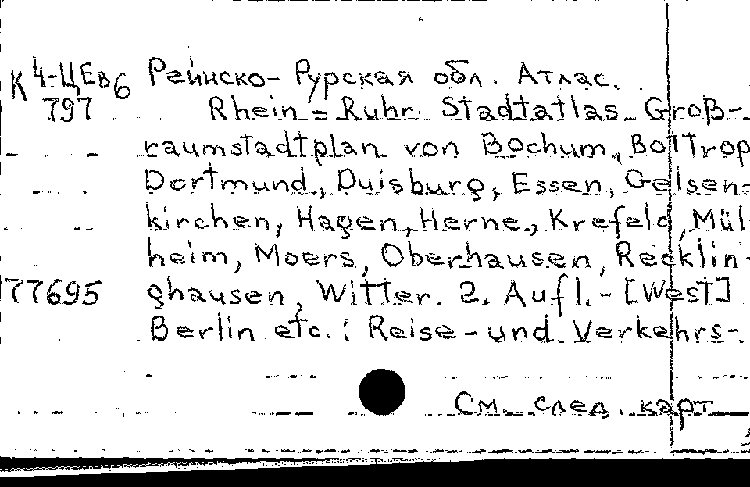 К 4-ЦЕв6 Рейнско-Рурская обл. Атлас.
797 Rhein=Ruhr Stadtatlas Groß-
raumstadtplan von Bochum, Bottrop
Dortmund, Duisburg, Essen, Gelsen-
kirchen, Hagen, Herne, Krefeld, Mül-
heim, Moers, Oberhausen, Recklin-
77695 ghausen, Witter. 2. Aufl. - [West]
Berlin etc.: Reise- und Verkehrs-
См. след. карт